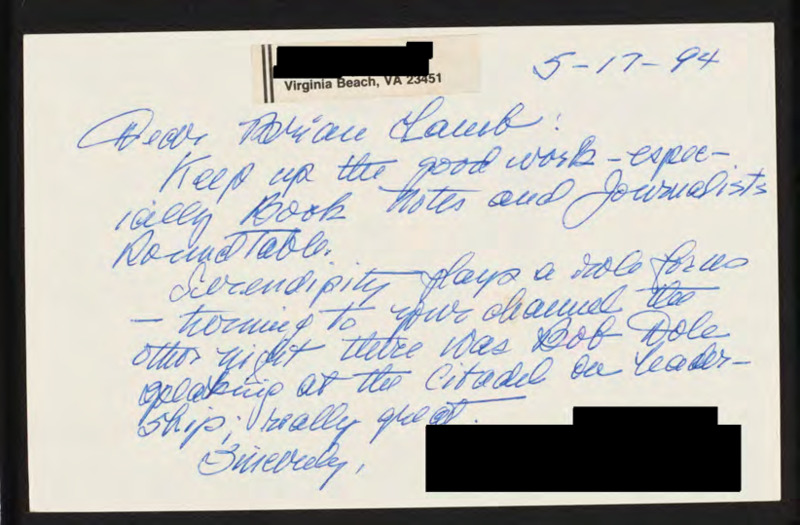 Virginia Beach, VA 23451
5-17-94
Dear Brian Lamb:
Keep up the good work - espec-
ially Book Notes and Journalists
Roundtable.
Serendipity plays a role for us
- turning to your channel the
other night there was Bob Dole
speaking at the Citadel on leader-
ship; really great.
Sincerely,